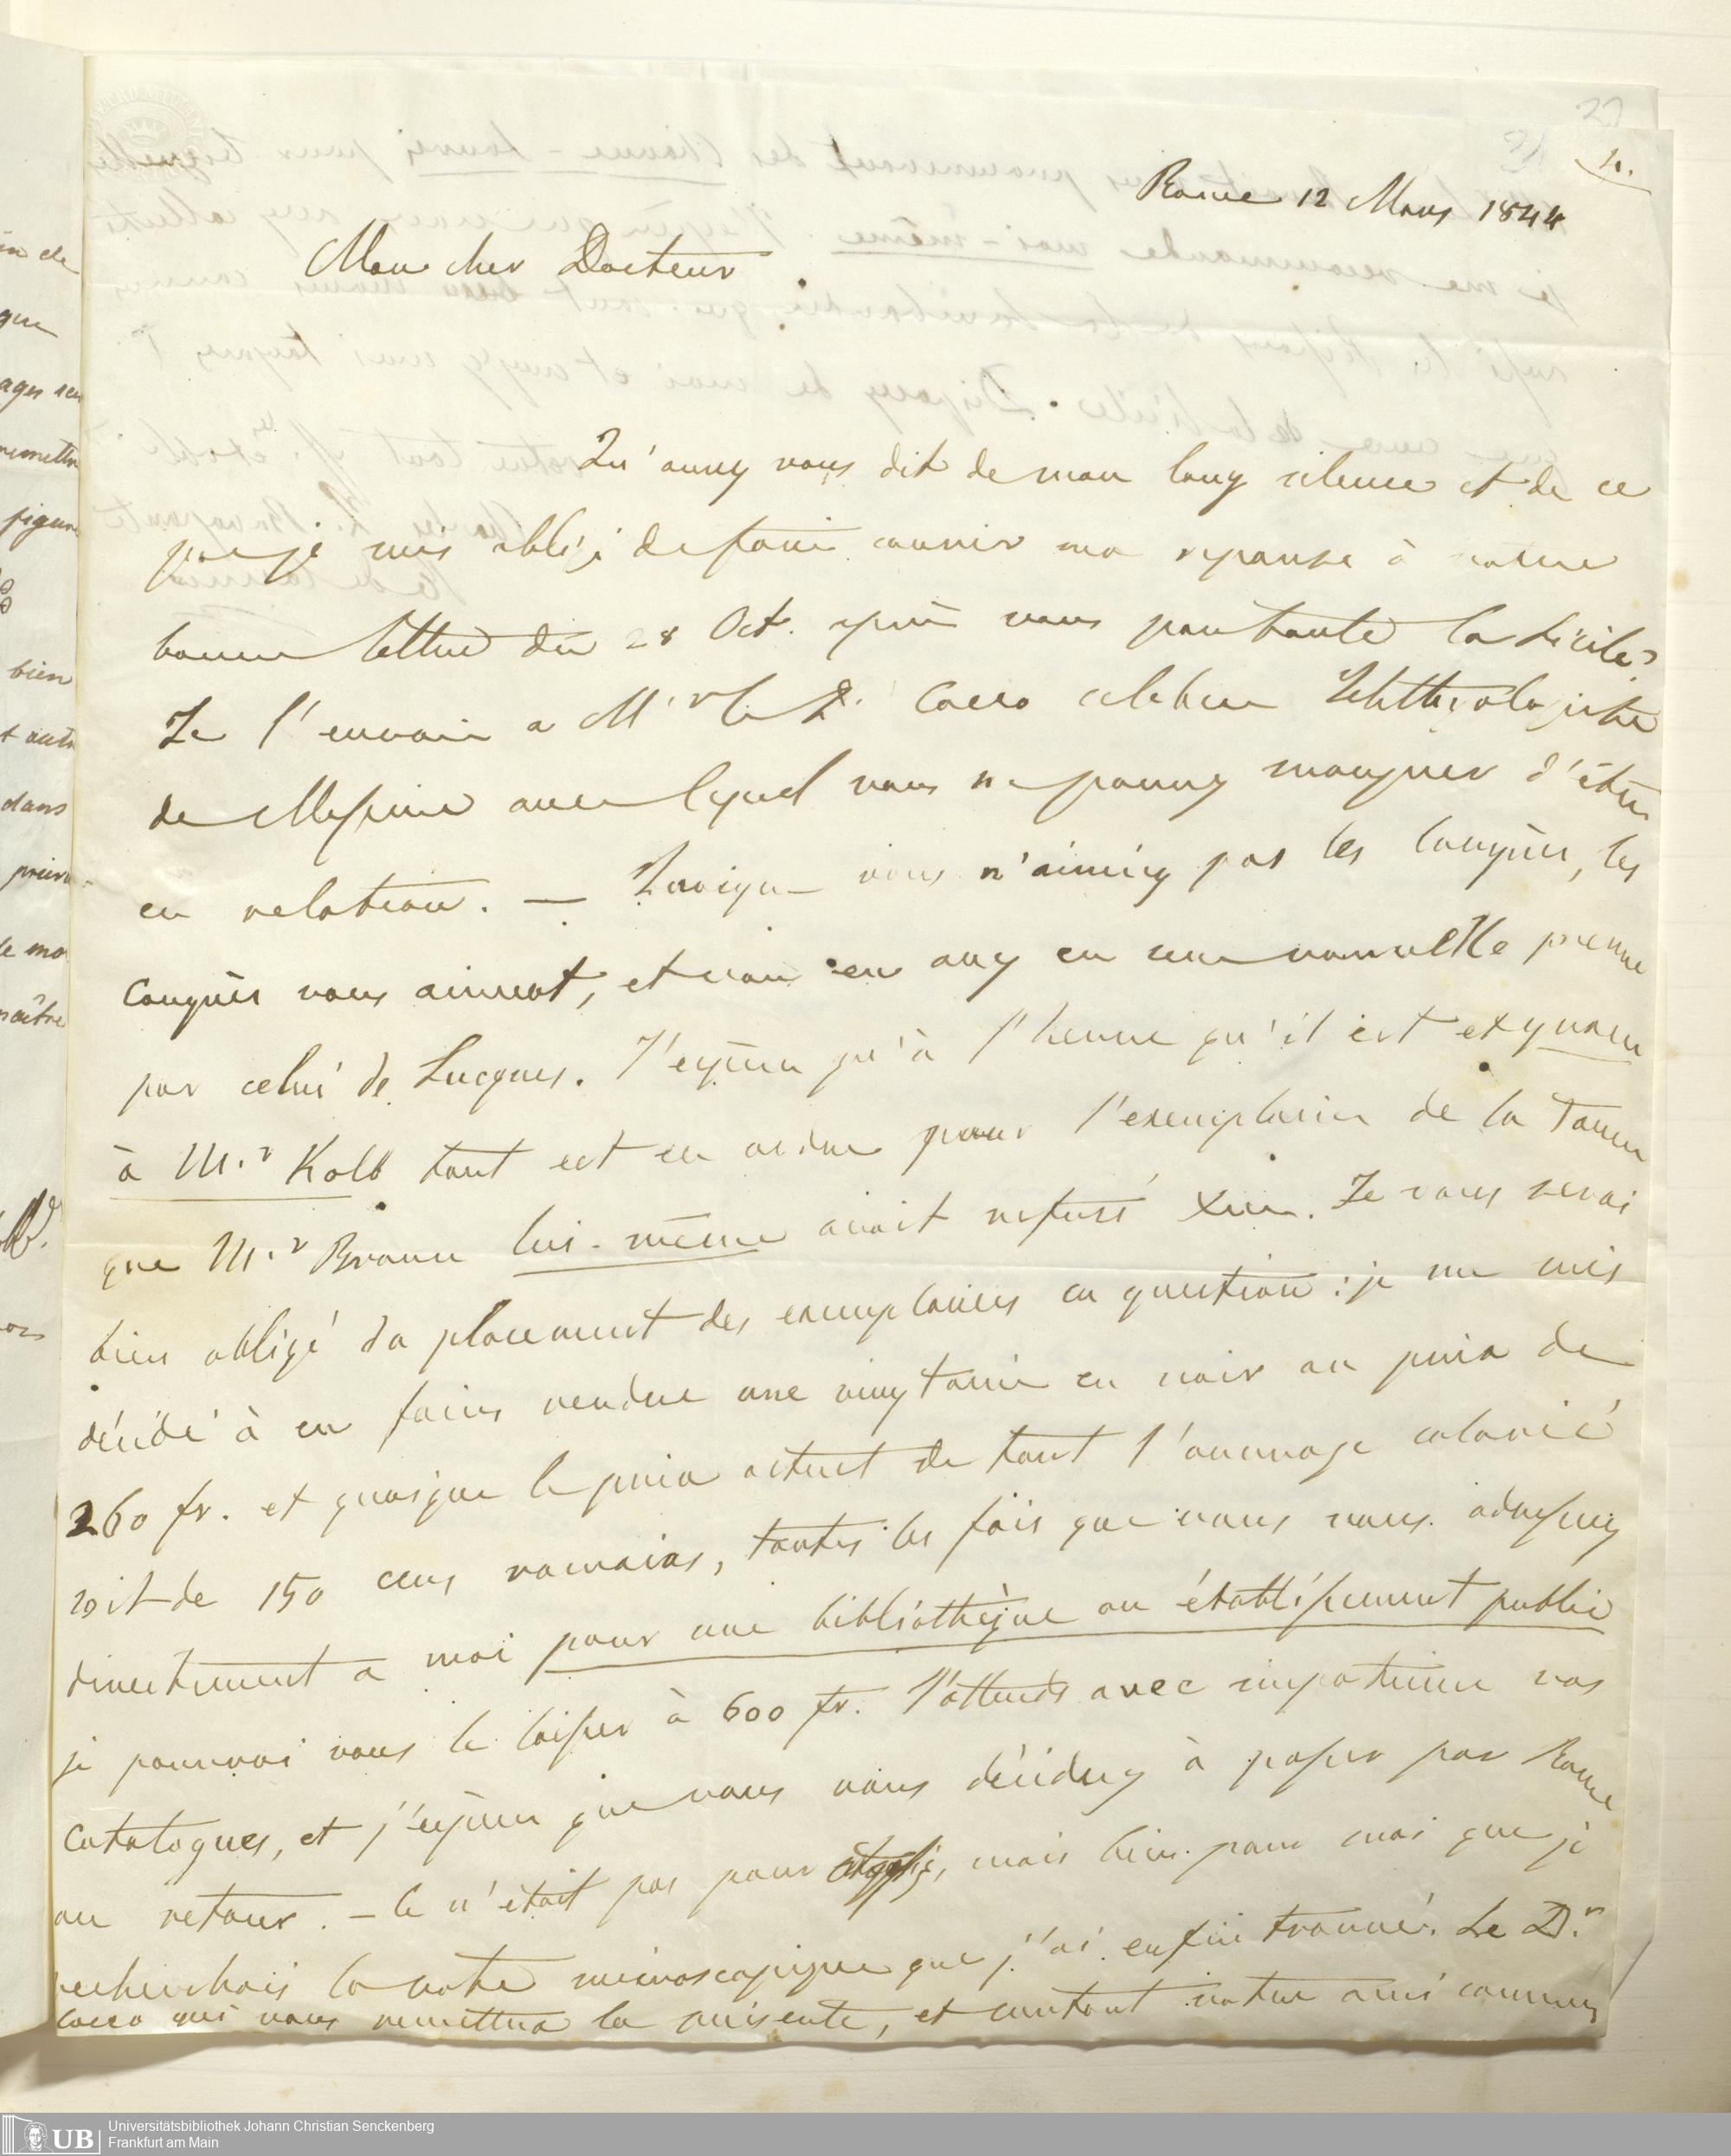 Rome 12 Mars 1844
Mon cher Docteur
Qu'aurez vous dit de mon long silence et de ce
que je suis obligé de faire courrir ma reponse à votre
bonne lettre du 28 Oct. après vous par toute la Sicile?
Je l'envoie a M.r le D. Cocco celebre Ichthyologiste
de Messine avec lequel vous ne pouvez manquer d'être
en relation. — Quoique vous n'aimiez pas les Congrès, les
Congrès vous aiment, et vous en avez eu une nouvelle preuve
par celui de Lucques. J'espère qu'à l'heure qu'il est
à M.r Kolb tout est en ordre pour l'exemplaire de la Faune
que M.r Braun lui-même avait refusé. Je vous serai
bien obligé du placement des exemplaires en question: je me suis
décidé à en faire vendre une vingtaine en noir au prix de
260 fr. et quoique le prix actuel de tout l'ouvrage colorié
soit de 150 ecus romains, toutes les fois que vous vous adressiez
directement a moi pour une bibliothèque ou établissement public
je pourrai vous le laisser à 600 fr. J'attends avec impatience vos
Catalogues, et j'espère que vous vous décidez à passer par Rome
au retour. — Ce n'était pas pour mais bien pour moi que je
recherchais la note microscopique que j'ai enfin trouvé. Le D.r
Cocco qui vous remettra la présente, et surtout notre ami commun
22
in de
que
ages
remettre
figure
8
bien
t autre
dans
de mo
naître
UB
Universitätsbibliothek Johann Christian Senckenberg
Frankfurt am Main